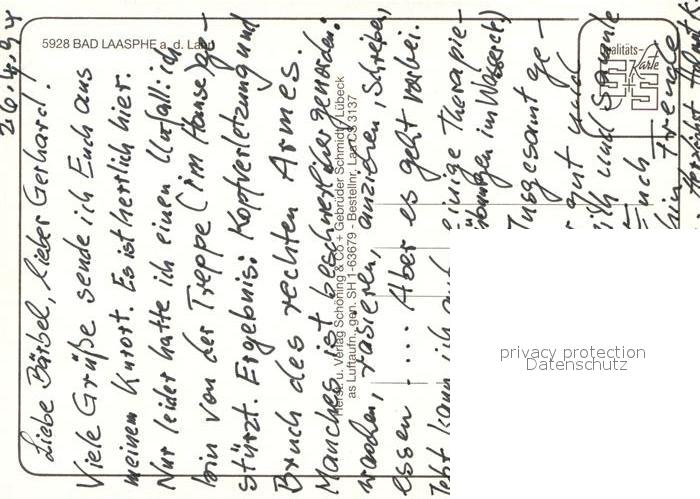 26.4.94
5928 BAD LAASPHE a. d. Lahn
Qualitäts-
Karte
Liebe Bärbel, lieber Gerhard!
Viele Grüße sende ich Euch aus
meinem Kurort. Es ist herrlich hier.
Nur leider hatte ich einen Unfall: ich
bin von der Treppe (im Hause) ge-
stürzt. Ergebnis: Kopfverletzung und
Bruch des rechten Armes.
Manches ist beschwerlicher geworden:
waschen, rasieren, anziehen, schreiben,
essen .... Aber es geht vorbei.
Jetzt kann ich
einige Therapie-
übungen im Wasser)
Insgesamt ge-
gut und
ich und
Euch
Herst. u. Verlag Schöning & Co + Gebrüder Schmidt, Lübeck
as Luftaufn., gen. SH 1-63679 - Bestellnr. Laa CS 3137
privacy protection
Datenschutz